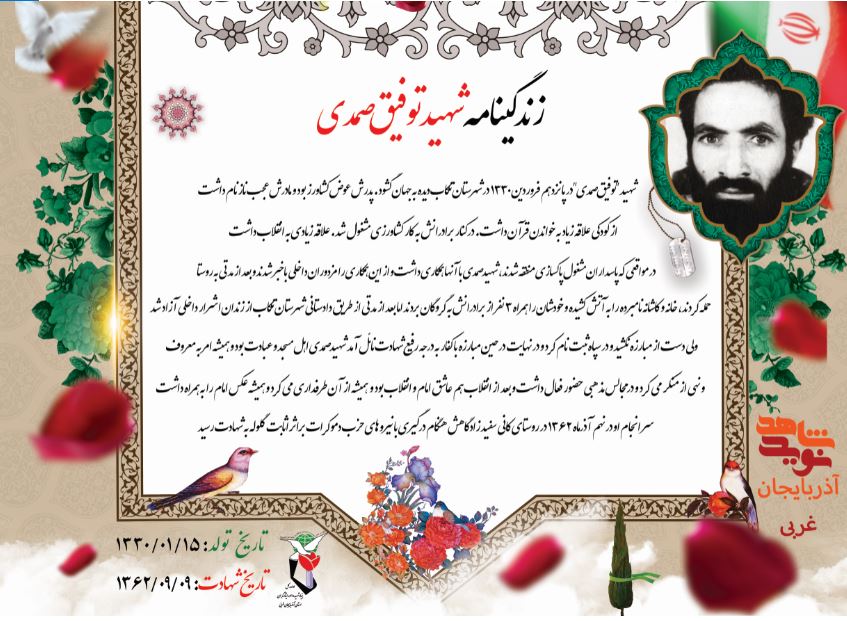 زندگینامه شهید توفیق صمدی
شهید "توفیق صمدی" در پانزدهم فروردین ۱۳۳۰ در شهرستان تکاب دیده به جهان گشود. پدرش عوض کشاورز بود و مادرش عجب ناز نام داشت
از کودکی علاقه زیاد به خواندن قرآن داشت. در کنار برادرانش به کار کشاورزی مشغول شد. علاقه زیادی به انقلاب داشت
در مواقعی که پاسداران مشغول پاکسازی منطقه شدند، شهید صمدی با آنها همکاری داشت و از این همکاری را مزدوران داخلی با خبر شدند و بعد از مدتی به روستا
حمله کردند، خانه و کاشانه نامبرده را به آتش کشیده و خودشان را همراه ۳ نفر از برادرانش به گروگان بردند اما بعد از مدتی از طریق دادستانی شهرستان تکاب از زندان اشرار داخلی آزاد شد
ولی دست از مبارزه نکشید و در سپاه ثبت نام کرد و در نهایت در حین مبارزه با کفار به درجه رفیع شهادت نائل آمد شهید صمدی اهل مسجد و عبادت بود و همیشه امر به معروف
و نهی از منکر می کرد و در مجالس مذهبی حضور فعال داشت و بعد از انقلاب هم عاشق امام و انقلاب بود و همیشه از آن طرفداری می کرد و همیشه عکس امام را به همراه داشت
سرانجام او در نهم آذر ماه ۱۳۶۲ در روستای کانی سفید زادگاهش هنگام درگیری با نیروهای حزب دموکرات بر اثر اثابت گلوله به شهادت رسید
نوید شاهد
آذربایجان
غربی
تاریخ تولد: ۱۳۳۰/۰۱/۱۵
تاریخ شهادت: ۱۳۶۲/۰۹/۰۹